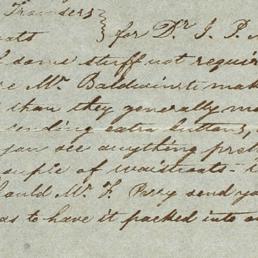 Trousers
for Dr. J. P.
some stuff not requir
Mr. Baldwin to mak
than they generally ma
sending extra buttons,
you see anything pret
couple of waistcoats
ould Mr. F. Perry send yo
as to have it packed into